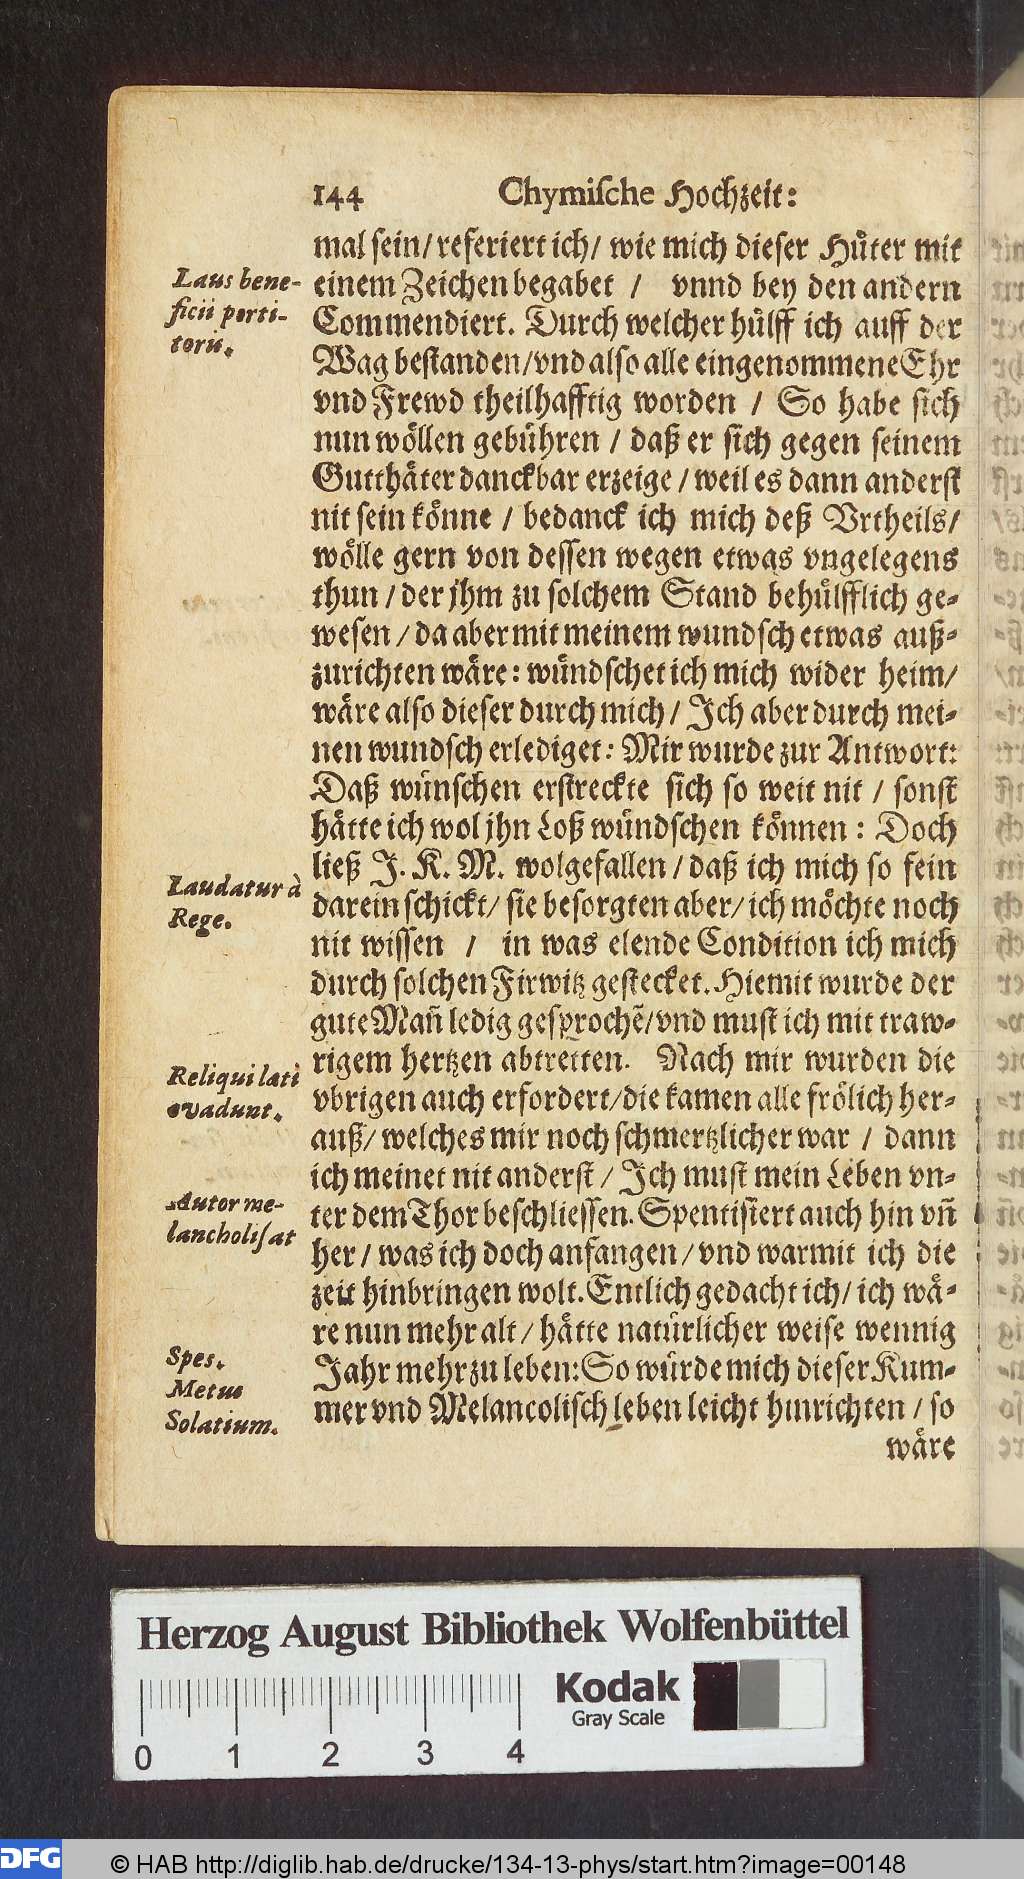 144 Chymische Hochzeit:
mal sein/ referiert ich/ wie mich dieser Hůter mit
einem Zeichen begabet / vnnd bey den andern
Commendiert. Durch welcher hůlff ich auff der
Wag bestanden/vnd also alle eingenommene Ehr
vnd Frewd theilhafftig worden / So habe sich
nun wôllen gebůhren / daß er sich gegen seinem
Gutthåter danckbar erzeige / weil es dann anderst
nit sein kônne / bedanck ich mich deß Vrtheils/
wôlle gern von dessen wegen etwas vngelegens
thun / der jhm zu solchem Stand behůlfflich ge-
wesen / da aber mit meinem wundsch etwas auß-
zurichten wåre: wůndschet ich mich wider heim/
wåre also dieser durch mich / Ich aber durch mei-
nen wundsch erlediget: Mir wurde zur Antwort:
Daß wůnschen erstreckte sich so weit nit / sonst
håtte ich wol jhn Loß wůndschen kônnen : Doch
ließ J. K. M. wolgefallen / daß ich mich so fein
darein schickt/ sie besorgten aber/ ich môchte noch
nit wissen / in was elende Condition ich mich
durch solchen Firwitz gestecket. Hiemit wurde der
gute Mañ ledig gesprochē/vnd must ich mit traw-
rigem hertzen abtretten. Nach mir wurden die
vbrigen auch erfordert/die kamen alle frôlich her-
auß/ welches mir noch schmertzlicher war / dann
ich meinet nit anderst / Ich must mein Leben vn-
ter dem Thor beschliessen. Spentisiert auch hin vñ
her / was ich doch anfangen / vnd warmit ich die
zeit hinbringen wolt. Entlich gedacht ich/ ich wå-
re nun mehr alt / håtte natůrlicher weise wennig
Jahr mehr zu leben: So wůrde mich dieser Kum-
mer vnd Melancolisch leben leicht hinrichten / so
wåre
Laus bene-
ficii perti-
torũ.
Laudatur à
Rege.
Reliqui lati
evadunt.
Autor me-
lancholisat
Spes.
Metus
Solatium.
Herzog August Bibliothek Wolfenbüttel
Kodak
Gray Scale
0 1 2 3 4
DFG © HAB http://diglib.hab.de/drucke/134-13-phys/start.htm?image=00148